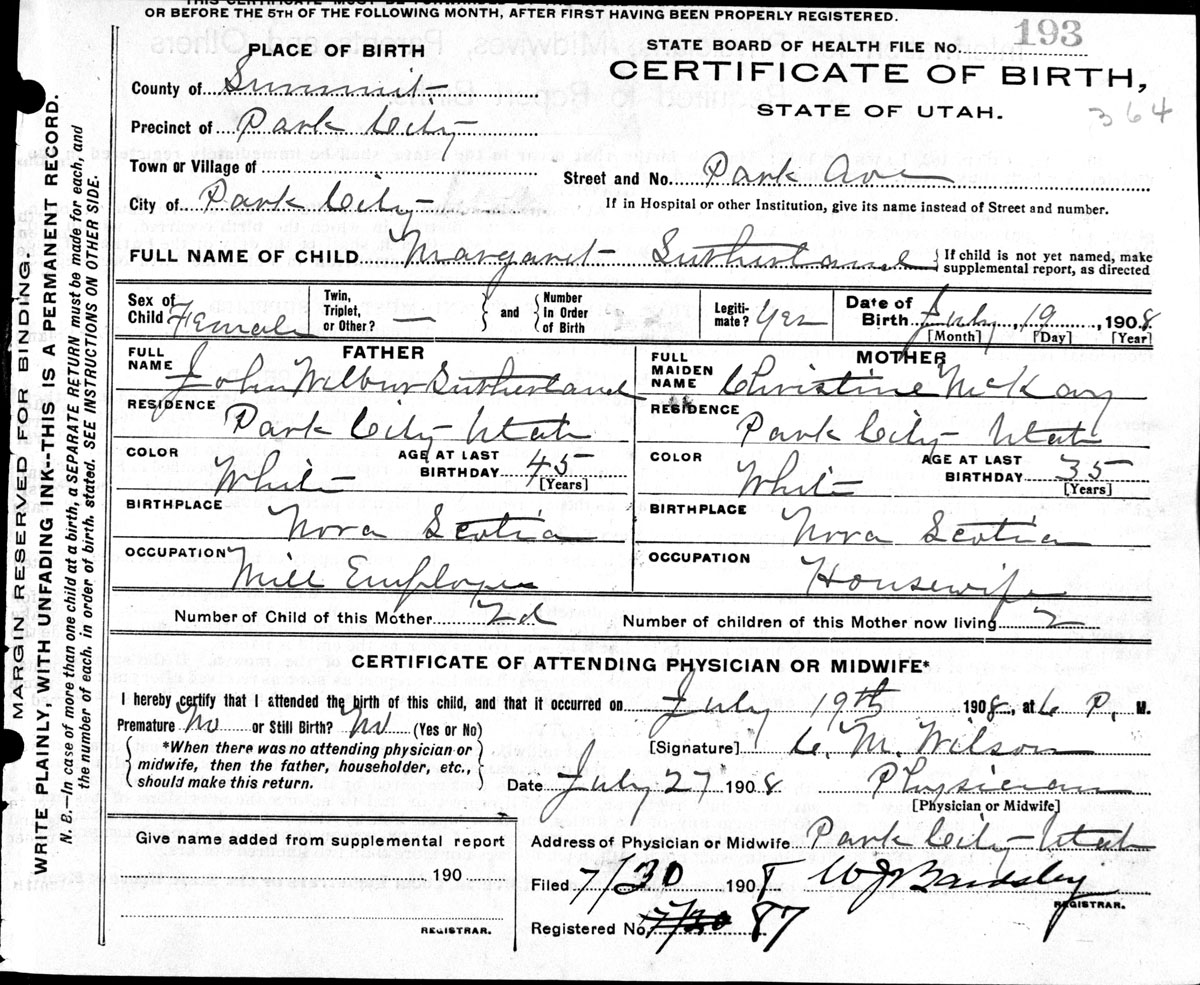 OR BEFORE THE 5TH OF THE FOLLOWING MONTH, AFTER FIRST HAVING BEEN PROPERLY REGISTERED.
MARGIN RESERVED FOR BINDING.
WRITE PLAINLY, WITH UNFADING INK--THIS IS A PERMANENT RECORD.
N. B.--In case of more than one child at a birth, a SEPARATE RETURN must be made for each, and
the number of each, in order of birth, stated. SEE INSTRUCTIONS ON OTHER SIDE.
PLACE OF BIRTH
STATE BOARD OF HEALTH FILE No. 193
CERTIFICATE OF BIRTH,
STATE OF UTAH.
364
County of Summit
Precinct of Park City
Town or Village of
Street and No. Park Ave
City of Park City
If in Hospital or other Institution, give its name instead of Street and number.
FULL NAME OF CHILD Margaret Sutherland { If child is not yet named, make supplemental report, as directed
Sex of Child Female Twin, Triplet, or Other? — } and { Number in Order of Birth Legitimate? Yes Date of Birth July, 19, 1908
[Month] [Day] [Year]
FATHER
MOTHER
FULL NAME John Wilbur Sutherland
FULL MAIDEN NAME Christine McKay
RESIDENCE Park City Utah
RESIDENCE Park City Utah
COLOR White AGE AT LAST BIRTHDAY 45 [Years]
COLOR White AGE AT LAST BIRTHDAY 35 [Years]
BIRTHPLACE Nova Scotia
BIRTHPLACE Nova Scotia
OCCUPATION Mill Employee
OCCUPATION Housewife
Number of Child of this Mother 2d
Number of children of this Mother now living 2
CERTIFICATE OF ATTENDING PHYSICIAN OR MIDWIFE*
I hereby certify that I attended the birth of this child, and that it occurred on July 19th 1908, at 6 P. M.
Premature No or Still Birth? No (Yes or No)
{ *When there was no attending physician or midwife, then the father, householder, etc., should make this return. }
[Signature] C. M. Wilson
Date July 27 1908. Physician
[Physician or Midwife]
Give name added from supplemental report
190
REGISTRAR.
Address of Physician or Midwife Park City Utah
Filed 7/30 1908 W J Bardsley
REGISTRAR.
Registered No. 7/30 87